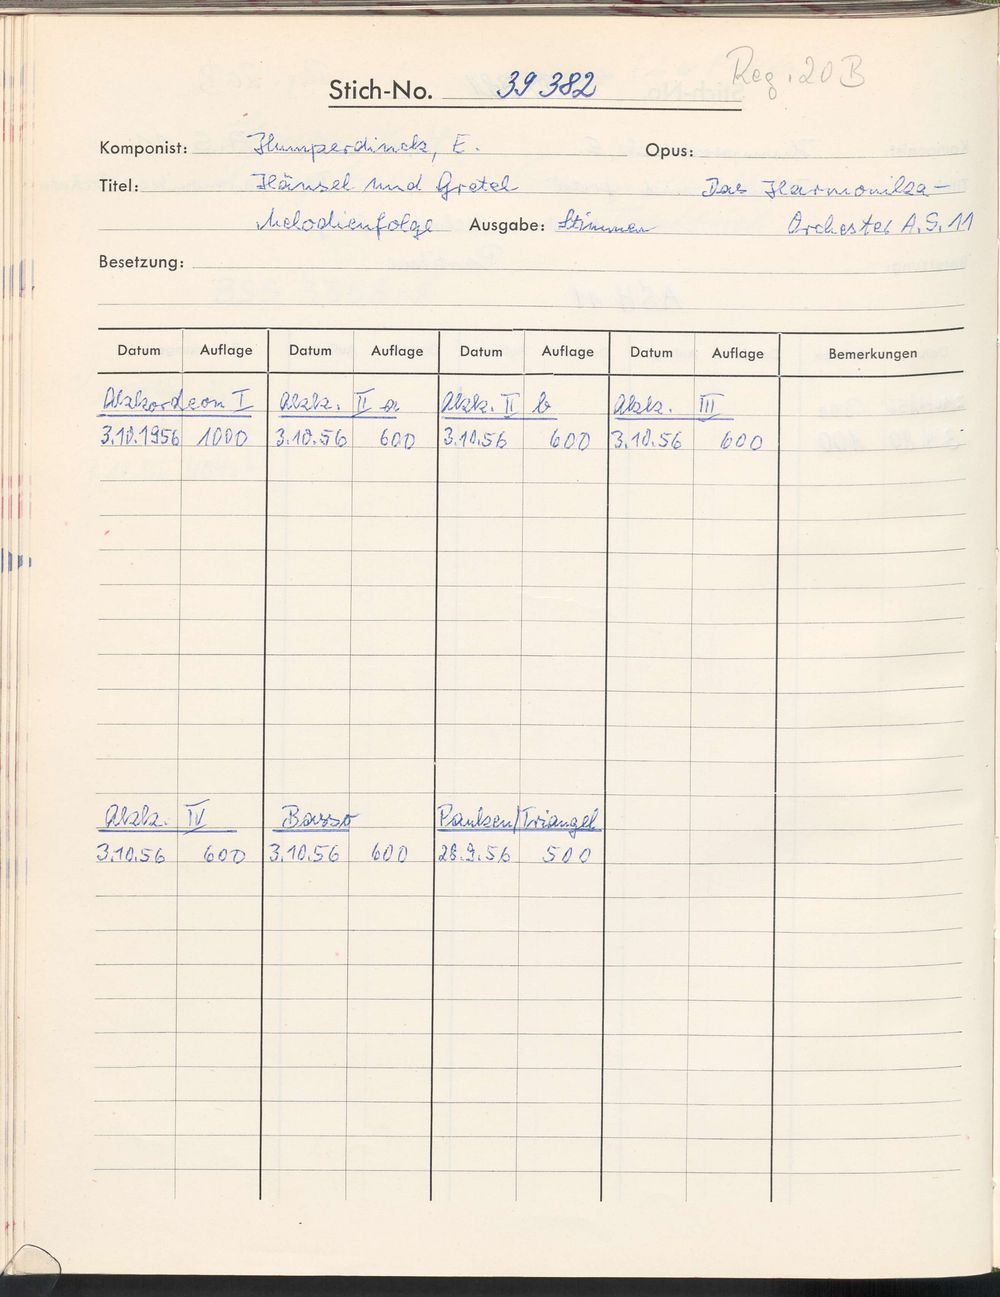 Reg. 20 B
Stich-No. 39 382
Komponist: Humperdinck, E. Opus:
Titel: Hänsel und Gretel Das Harmonika-
Melodienfolge Ausgabe: Stimmen Orchester A.S. 11
Besetzung:
Datum Auflage Datum Auflage Datum Auflage Datum Auflage Bemerkungen
Akkordeon I Akk. II a Akk. II b Akk. III
3.10.1956 1000 3.10.56 600 3.10.56 600 3.10.56 600
Akk. IV Basso Pauken/Triangel
3.10.56 600 3.10.56 600 28.9.56 500